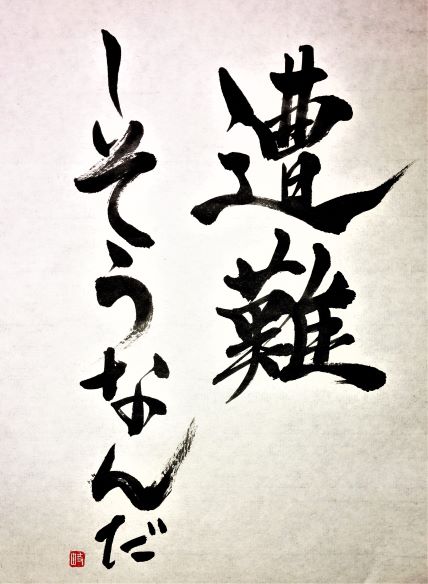 遭難
しそうなんだ